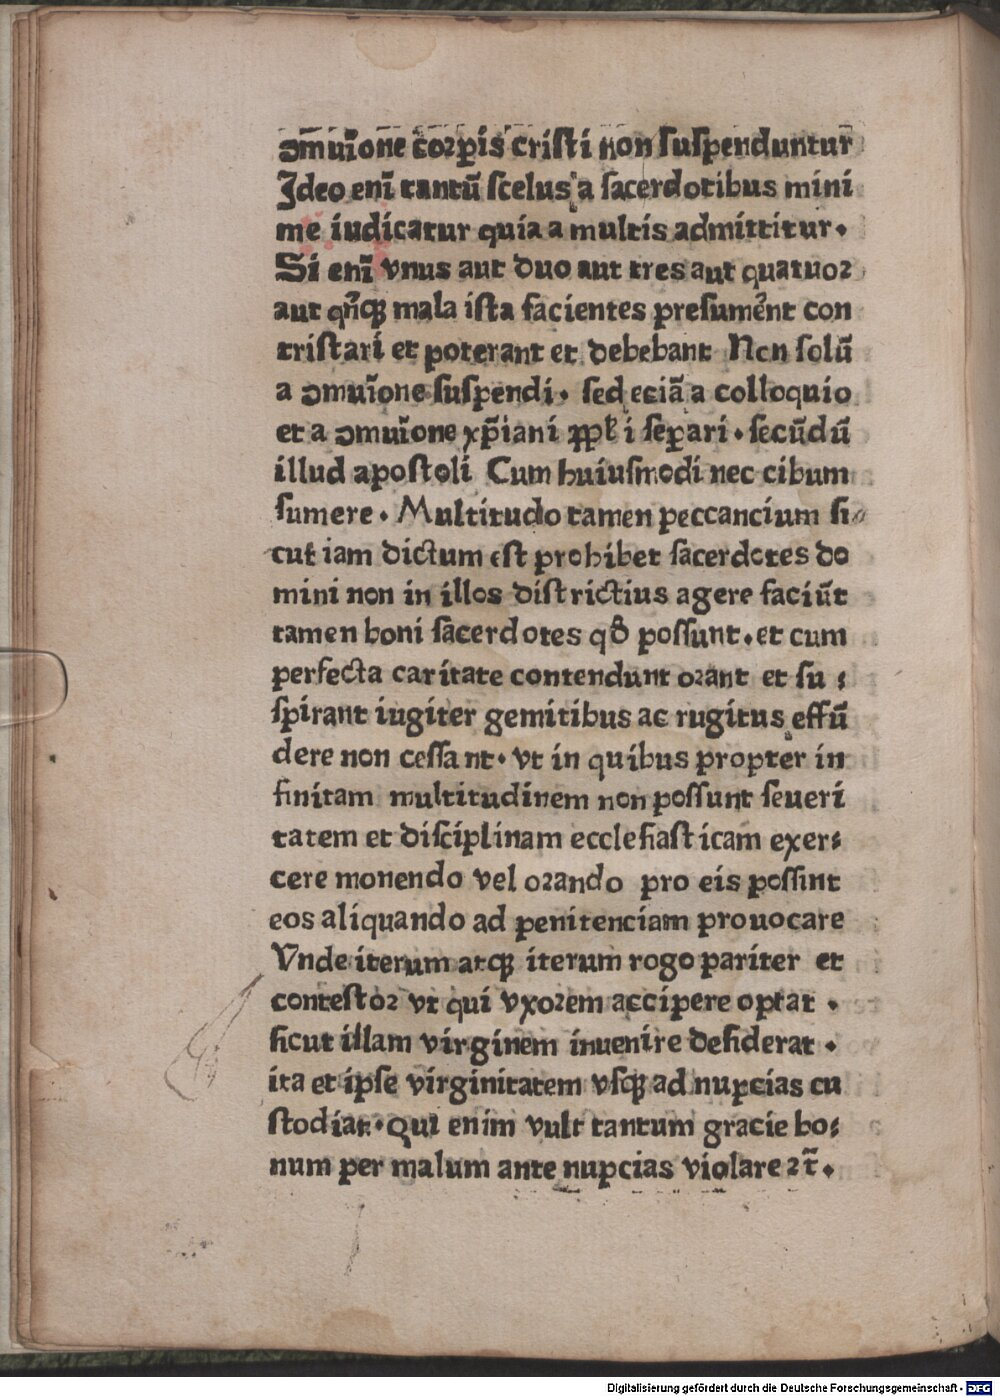 ꝯmuīone corꝑis cristi non suspenduntur
Jdeo enī tantū scelus a sacerdotibus mini
me iudicatur quia a multis admittitur.
Si enī vnus aut duo aut tres aut quatuor
aut qn̄qꝫ mala ista facientes presumēnt con
tristari et poterant et debebant Non solū
a ꝯmuīone suspendi. sed eciā a colloquio
et a ꝯmuīone xp̄iani ppl̄i seꝑari. secūdū
illud apostoli Cum huiusmodi nec cibum
sumere. Multitudo tamen peccancium si⸗
cut iam dictum est prohibet sacerdotes do
mini non in illos districtius agere faciūt
tamen boni sacerdotes qđ possunt. et cum
perfecta caritate contendunt orant et su⸗
spirant iugiter gemitibus ac rugitus effū
dere non cessant. vt in quibus propter in
finitam multitudinem non possunt seueri
tatem et disciplinam ecclesiasticam exer⸗
cere monendo vel orando pro eis possint
eos aliquando ad penitenciam prouocare
Vnde iterum atqꝫ iterum rogo pariter et
contestor vt qui vxorem accipere optat.
sicut illam virginem inuenire desiderat.
ita et ipse virginitatem vsqꝫ ad nupcias cu
stodiat. Qui enim vult tantum gracie bo⸗
num per malum ante nupcias violare ⁊t̄.
Digitalisierung gefördert durch die Deutsche Forschungsgemeinschaft - DFG